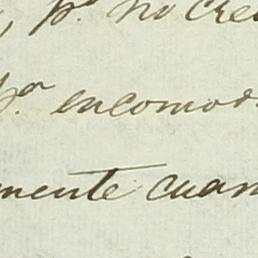 , pª no cre
pª encomod
mente cuan